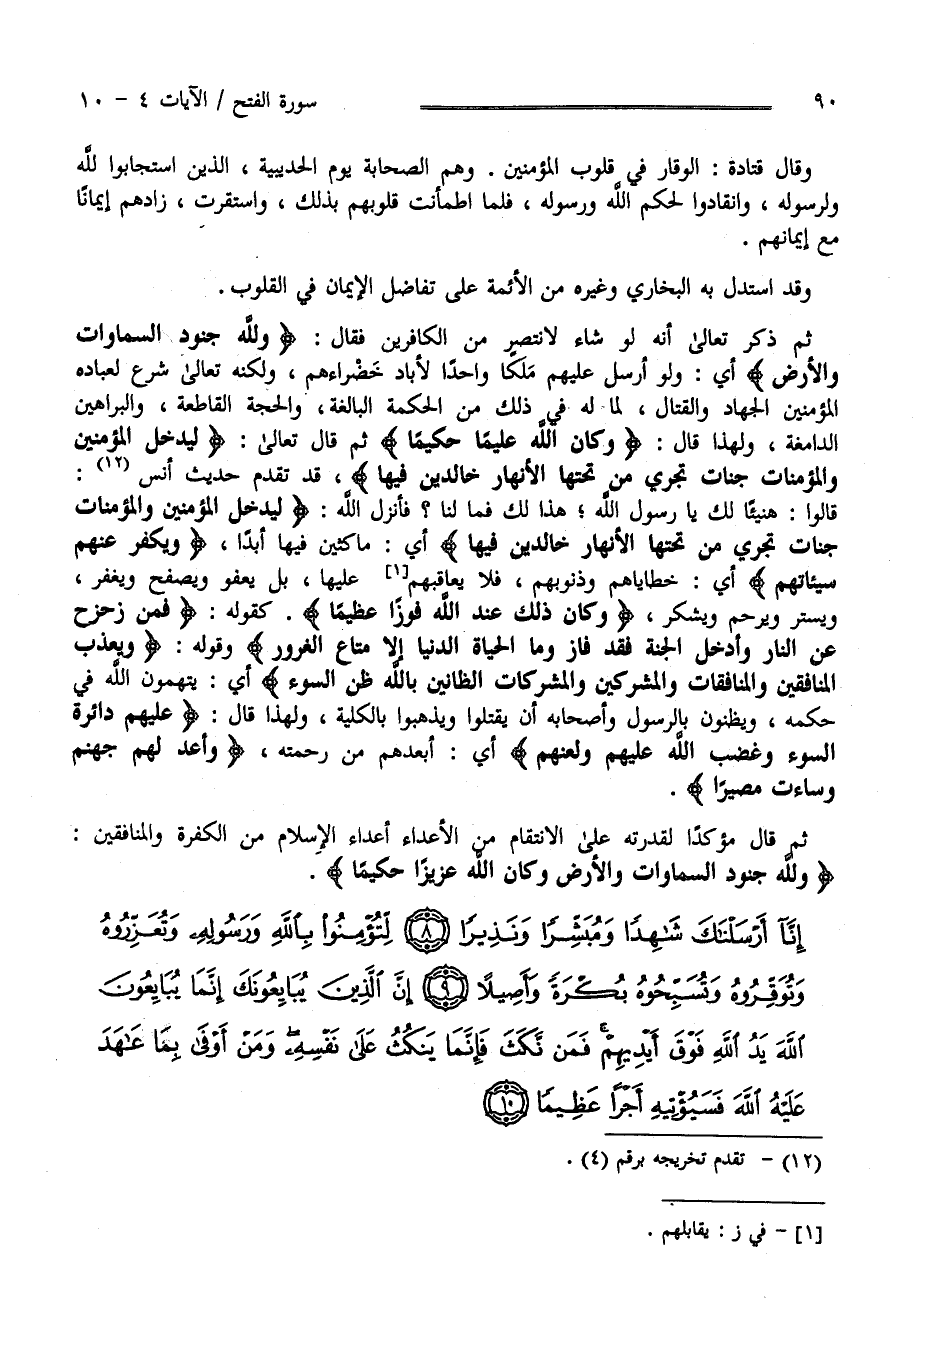 ٩٠ سورة الفتح / الآيات ٤ - ١٠
وقال قتادة : الوقار في قلوب المؤمنين . وهم الصحابة يوم الحديبية ، الذين استجابوا للَّه
ولرسوله ، وانقادوا لحكم اللَّه ورسوله ، فلما اطمأنت قلوبهم بذلك ، واستقرت ، زادهم إيمانًا
مع إيمانهم .
وقد استدل به البخاري وغيره من الأئمة على تفاضل الإيمان في القلوب .
ثم ذكر تعالىٰ أنه لو شاء لانتصر من الكافرين فقال : ﴿ وللَّه جنود السماوات
والأرض ﴾ أي : ولو أرسل عليهم مَلَكًا واحدًا لأباد خَضْراءهم ، ولكنه تعالىٰ شرع لعباده
المؤمنين الجهاد والقتال ، لما له في ذلك من الحكمة البالغة ، والحجة القاطعة ، والبراهين
الدامغة ، ولهذا قال : ﴿ وكان اللَّه عليمًا حكيمًا ﴾ ثم قال تعالىٰ : ﴿ ليدخل المؤمنين
والمؤمنات جنات تجري من تحتها الأنهار خالدين فيها ﴾ ، قد تقدم حديث أنس (١٢) :
قالوا : هنيئًا لك يا رسول اللَّه ؛ هذا لك فما لنا ؟ فأنزل اللَّه : ﴿ ليدخل المؤمنين والمؤمنات
جنات تجري من تحتها الأنهار خالدين فيها ﴾ أي : ماكثين فيها أبدًا ، ﴿ ويكفر عنهم
سيئاتهم ﴾ أي : خطاياهم وذنوبهم ، فلا يعاقبهم[١] عليها ، بل يعفو ويصفح ويغفر ،
ويستر ويرحم ويشكر ، ﴿ وكان ذلك عند اللَّه فوزًا عظيمًا ﴾ . كقوله : ﴿ فمن زحزح
عن النار وأدخل الجنة فقد فاز وما الحياة الدنيا إلا متاع الغرور ﴾ وقوله : ﴿ ويعذب
المنافقين والمنافقات والمشركين والمشركات الظانين باللَّه ظن السوء ﴾ أي : يتهمون اللَّه في
حكمه ، ويظنون بالرسول وأصحابه أن يقتلوا ويذهبوا بالكلية ، ولهذا قال : ﴿ عليهم دائرة
السوء وغضب اللَّه عليهم ولعنهم ﴾ أي : أبعدهم من رحمته ، ﴿ وأعد لهم جهنم
وساءت مصيرًا ﴾ .
ثم قال مؤكدًا لقدرته علىٰ الانتقام من الأعداء أعداء الإسلام من الكفرة والمنافقين :
﴿ وللَّه جنود السماوات والأرض وكان اللَّه عزيزًا حكيمًا ﴾ .
إِنَّآ أَرْسَلْنَٰكَ شَٰهِدًا وَمُبَشِّرًا وَنَذِيرًا ٨ لِّتُؤْمِنُوا۟ بِٱللَّهِ وَرَسُولِهِۦ وَتُعَزِّرُوهُ
وَتُوَقِّرُوهُ وَتُسَبِّحُوهُ بُكْرَةً وَأَصِيلًا ٩ إِنَّ ٱلَّذِينَ يُبَايِعُونَكَ إِنَّمَا يُبَايِعُونَ
ٱللَّهَ يَدُ ٱللَّهِ فَوْقَ أَيْدِيهِمْ ۚ فَمَن نَّكَثَ فَإِنَّمَا يَنكُثُ عَلَىٰ نَفْسِهِۦ ۖ وَمَنْ أَوْفَىٰ بِمَا عَٰهَدَ
عَلَيْهُ ٱللَّهَ فَسَيُؤْتِيهِ أَجْرًا عَظِيمًا ١٠
(١٢) - تقدم تخريجه برقم (٤) .
[١] - في ز : يقابلهم .